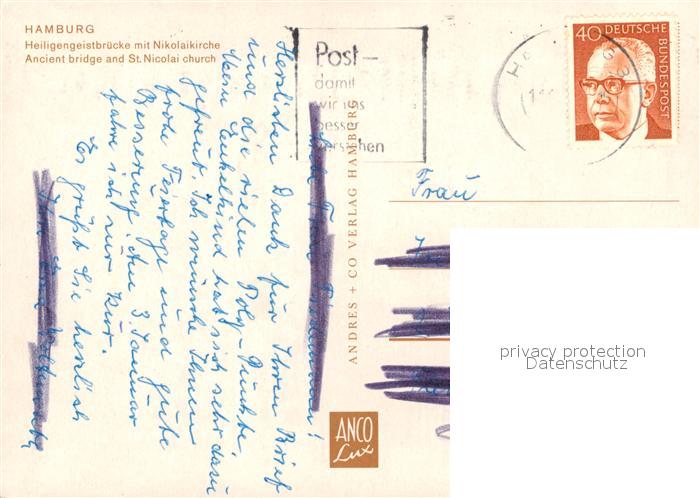 HAMBURG
Heiligengeistbrücke mit Nikolaikirche
Ancient bridge and St. Nicolai church
Post-
damit
wir uns
besser
verstehen
40
DEUTSCHE
BUNDESPOST
Frau
ANDRES + CO VERLAG HAMBURG
Herzlichen Dank für Ihren Brief
und die vielen Punkte.
Mein Enkelkind hat sich sehr dazu
gefreut. Ich wünsche Ihnen
frohe Feiertage und gute
Besserung. Am 3. Januar
fahre ich zur Kur.
Es grüßt Sie herzlich
ANCO
Lux
privacy protection
Datenschutz